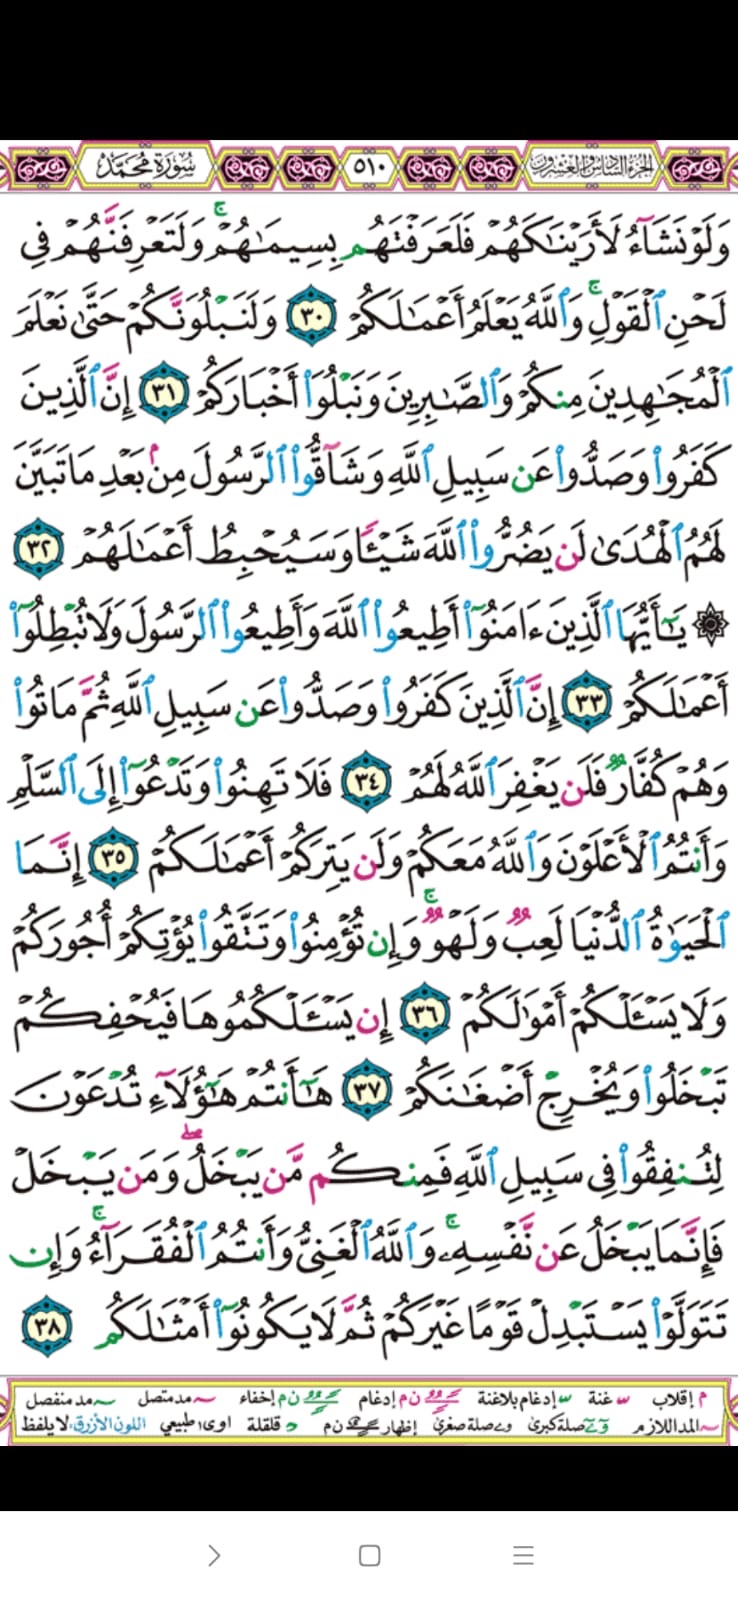 الجزء السادس والعشرون ٥١٠ سورة محمد
وَلَوْ نَشَآءُ لَأَرَيْنَٰكَهُمْ فَلَعَرَفْتَهُم بِسِيمَٰهُمْ ۚ وَلَتَعْرِفَنَّهُمْ فِى
لَحْنِ ٱلْقَوْلِ ۚ وَٱللَّهُ يَعْلَمُ أَعْمَٰلَكُمْ ٣٠ وَلَنَبْلُوَنَّكُمْ حَتَّىٰ نَعْلَمَ
ٱلْمُجَٰهِدِينَ مِنكُمْ وَٱلصَّٰبِرِينَ وَنَبْلُوَا۟ أَخْبَارَكُمْ ٣١ إِنَّ ٱلَّذِينَ
كَفَرُوا۟ وَصَدُّوا۟ عَن سَبِيلِ ٱللَّهِ وَشَآقُّوا۟ ٱلرَّسُولَ مِنۢ بَعْدِ مَا تَبَيَّنَ
لَهُمُ ٱلْهُدَىٰ لَن يَضُرُّوا۟ ٱللَّهَ شَيْـًٔا وَسَيُحْبِطُ أَعْمَٰلَهُمْ ٣٢
۞ يَٰٓأَيُّهَا ٱلَّذِينَ ءَامَنُوٓا۟ أَطِيعُوا۟ ٱللَّهَ وَأَطِيعُوا۟ ٱلرَّسُولَ وَلَا تُبْطِلُوٓا۟
أَعْمَٰلَكُمْ ٣٣ إِنَّ ٱلَّذِينَ كَفَرُوا۟ وَصَدُّوا۟ عَن سَبِيلِ ٱللَّهِ ثُمَّ مَاتُوا۟
وَهُمْ كُفَّارٌ فَلَن يَغْفِرَ ٱللَّهُ لَهُمْ ٣٤ فَلَا تَهِنُوا۟ وَتَدْعُوٓا۟ إِلَى ٱلسَّلْمِ
وَأَنتُمُ ٱلْأَعْلَوْنَ وَٱللَّهُ مَعَكُمْ وَلَن يَتِرَكُمْ أَعْمَٰلَكُمْ ٣٥ إِنَّمَا
ٱلْحَيَوٰةُ ٱلدُّنْيَا لَعِبٌ وَلَهْوٌ ۚ وَإِن تُؤْمِنُوا۟ وَتَتَّقُوا۟ يُؤْتِكُمْ أُجُورَكُمْ
وَلَا يَسْـَٔلْكُمْ أَمْوَٰلَكُمْ ٣٦ إِن يَسْـَٔلْكُمُوهَا فَيُحْفِكُمْ
تَبْخَلُوا۟ وَيُخْرِجْ أَضْغَٰنَكُمْ ٣٧ هَٰٓأَنتُمْ هَٰٓؤُلَآءِ تُدْعَوْنَ
لِتُنفِقُوا۟ فِى سَبِيلِ ٱللَّهِ فَمِنكُم مَّن يَبْخَلُ ۖ وَمَن يَبْخَلْ
فَإِنَّمَا يَبْخَلُ عَن نَّفْسِهِۦ ۚ وَٱللَّهُ ٱلْغَنِىُّ وَأَنتُمُ ٱلْفُقَرَآءُ ۚ وَإِن
تَتَوَلَّوْا۟ يَسْتَبْدِلْ قَوْمًا غَيْرَكُمْ ثُمَّ لَا يَكُونُوٓا۟ أَمْثَٰلَكُم ٣٨
م إقلاب غنة إدغام بلاغنة ن م إدغام ن م إخفاء مد متصل مد منفصل
المد اللازم صلة كبرى صلة صغرى إظهار ن م قلقلة اوى طبيعي اللون الأزرق لا يلفظ